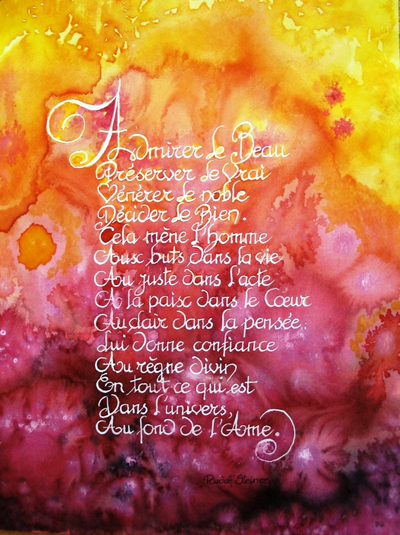 Admirer le Beau
Préserver le Vrai
Vénérer le noble
Décider le Bien.
Cela mène l'homme
Aux buts dans la vie
Au juste dans l'acte
A la paix dans le Cœur
Au clair dans la pensée.
Lui donne confiance
Au règne divin
En tout ce qui est
Dans l'univers,
Au fond de l'Ame.
Rudolf Steiner